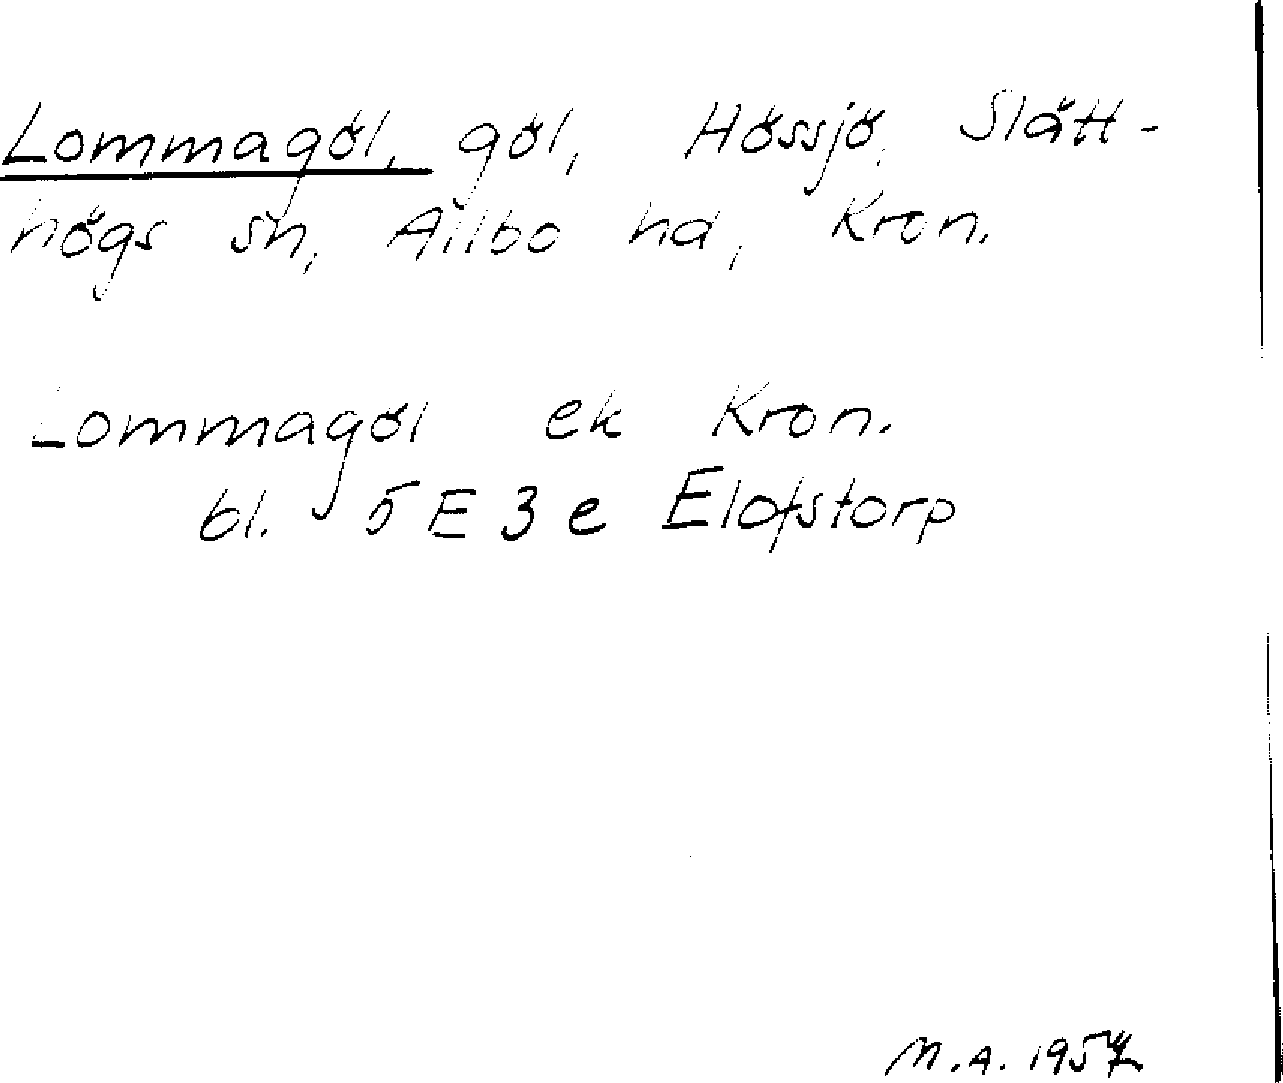 Lommagöl, göl, Hössjö, Slätt-
högs sn, Allbo hd, Kron.
Lommagöl ek Kron.
bl. 5 E 3 e Elofstorp
M.A. 1957